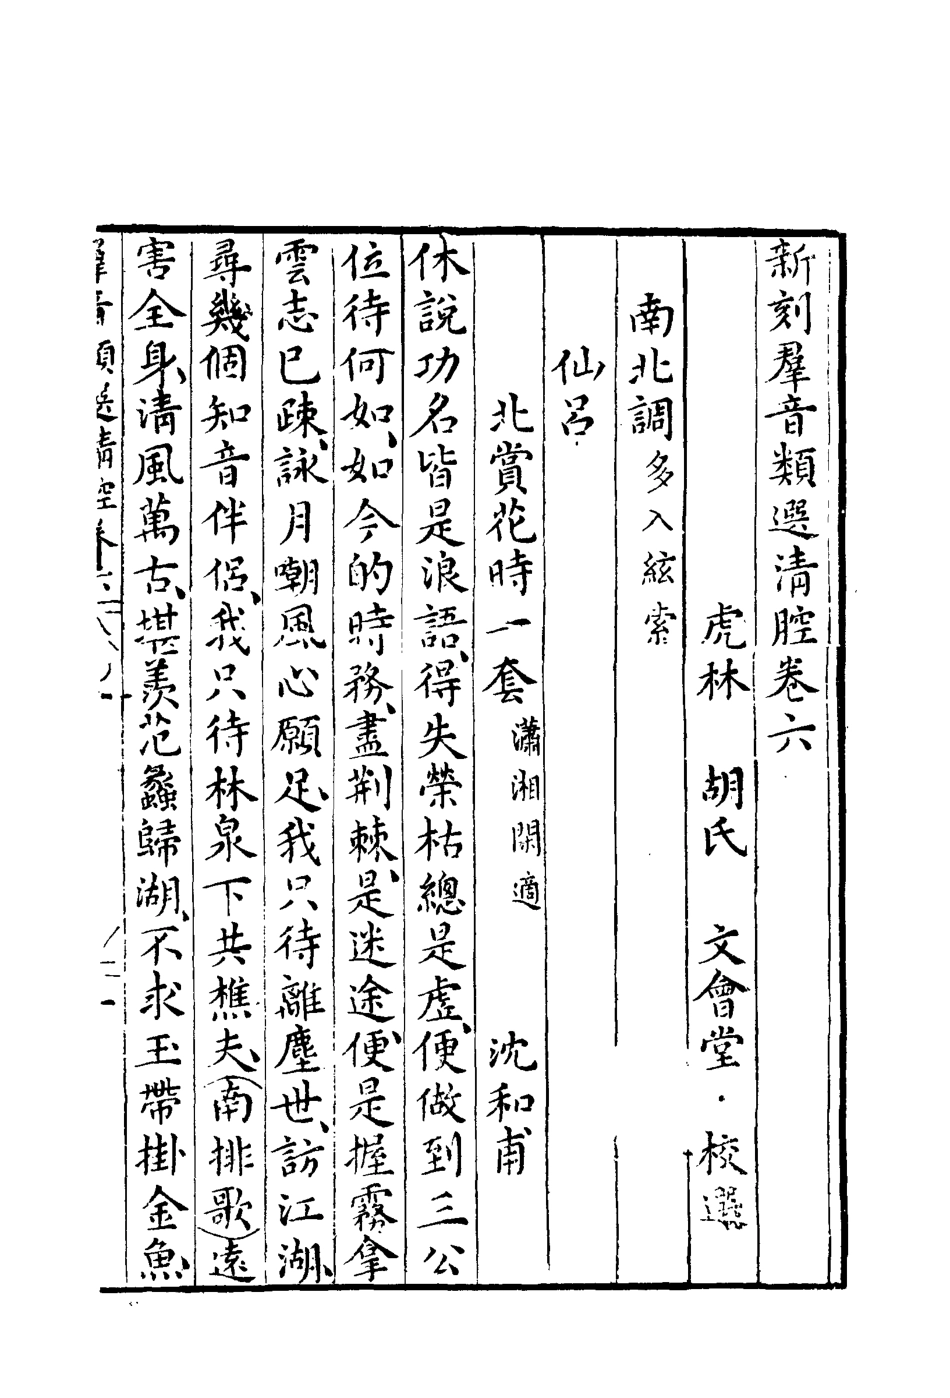 新刻羣音類選清腔卷六
虎林 胡氏 文會堂 校選
南北調多入絃索
仙呂
北賞花時一套 瀟湘閑適 沈和甫
休說功名皆是浪語、得失榮枯總是虛、便做到三公
位待何如、如今的時務、盡荆棘、是迷途、便是握霧拿
雲志已疎、詠月嘲風心願足、我只待離塵世、訪江湖、
尋幾個知音伴侶、我只待林泉下共樵夫、(南排歌)遠
害全身、清風萬古、堪羨范蠡歸湖、不求玉帶掛金魚、
羣音類選清腔卷六